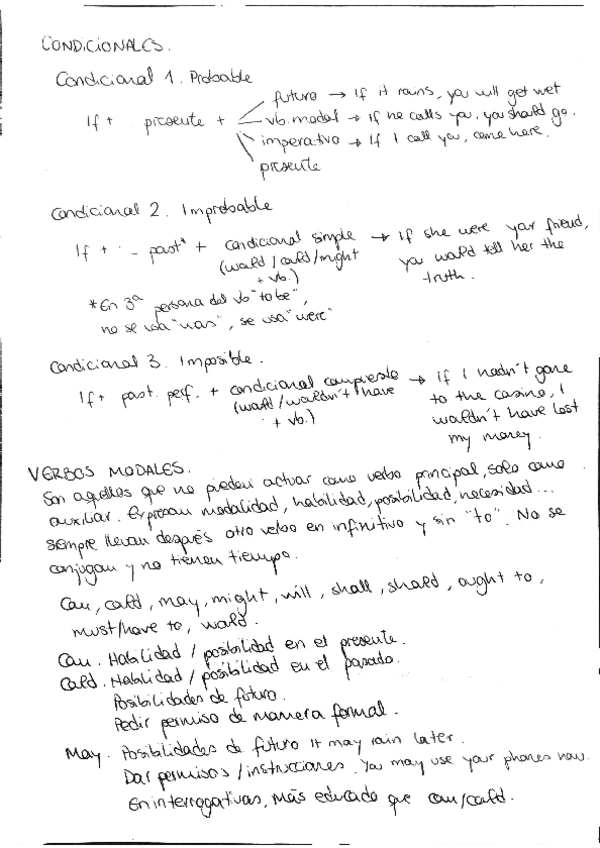 CONDICIONALES.
Condicional 1. Probable
futuro → If it rains, you will get wet
If + presente + vb. modal → If he calls you, you should go.
imperativo → If I call you, come here.
presente
Condicional 2. Improbable
If + - past* + condicional simple → If she were your friend,
(would/could/might you would tell her the
+ vb.) truth.
*En 3ª persona del vb "to be",
no se usa "was", se usa "were"
Condicional 3. Imposible.
If + past. perf. + condicional compuesto → if I hadn't gone
(would/wouldn't have to the casino, I
+ vb.) wouldn't have lost
my money.
VERBOS MODALES.
Son aquellos que no pueden actuar como verbo principal, solo como
auxiliar. Expresan modalidad, habilidad, posibilidad, necesidad...
siempre llevan después otro verbo en infinitivo y sin "to". No se
conjugan y no tienen tiempo.
Can, could, may, might, will, shall, should, ought to,
must/have to, would.
Can. Habilidad / posibilidad en el presente.
Could. Habilidad / posibilidad en el pasado.
Posibilidades de futuro.
Pedir permiso de manera formal.
May. Posibilidades de futuro It may rain later.
Dar permisos / instrucciones. You may use your phones now.
En interrogativas, más educado que can/could.